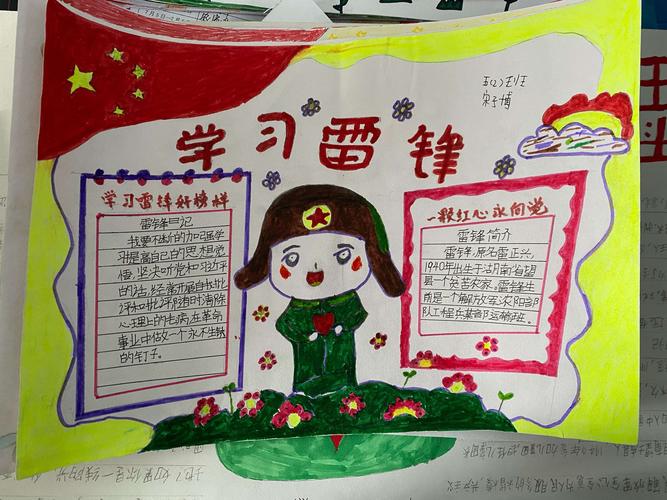 五(2)班
宋子博
学习雷锋
学习雷锋好榜样
雷锋日记
我要不断的加强学
习,提高自己的思想觉
悟,坚决听党和
的话,经常开展自我批
评和批评,随时清除
心理上的毛病,在革命
事业中做一个永不生锈
的钉子。
一颗红心永向党
雷锋简介
雷锋,原名雷正兴,
1940年出生于湖南省望
县一个贫苦农家,雷锋生
前是一个解放军沈阳部
队工程兵某部运输班。